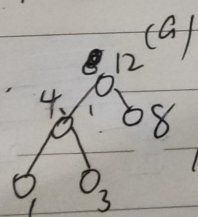 (a)
12
4
8
1
3